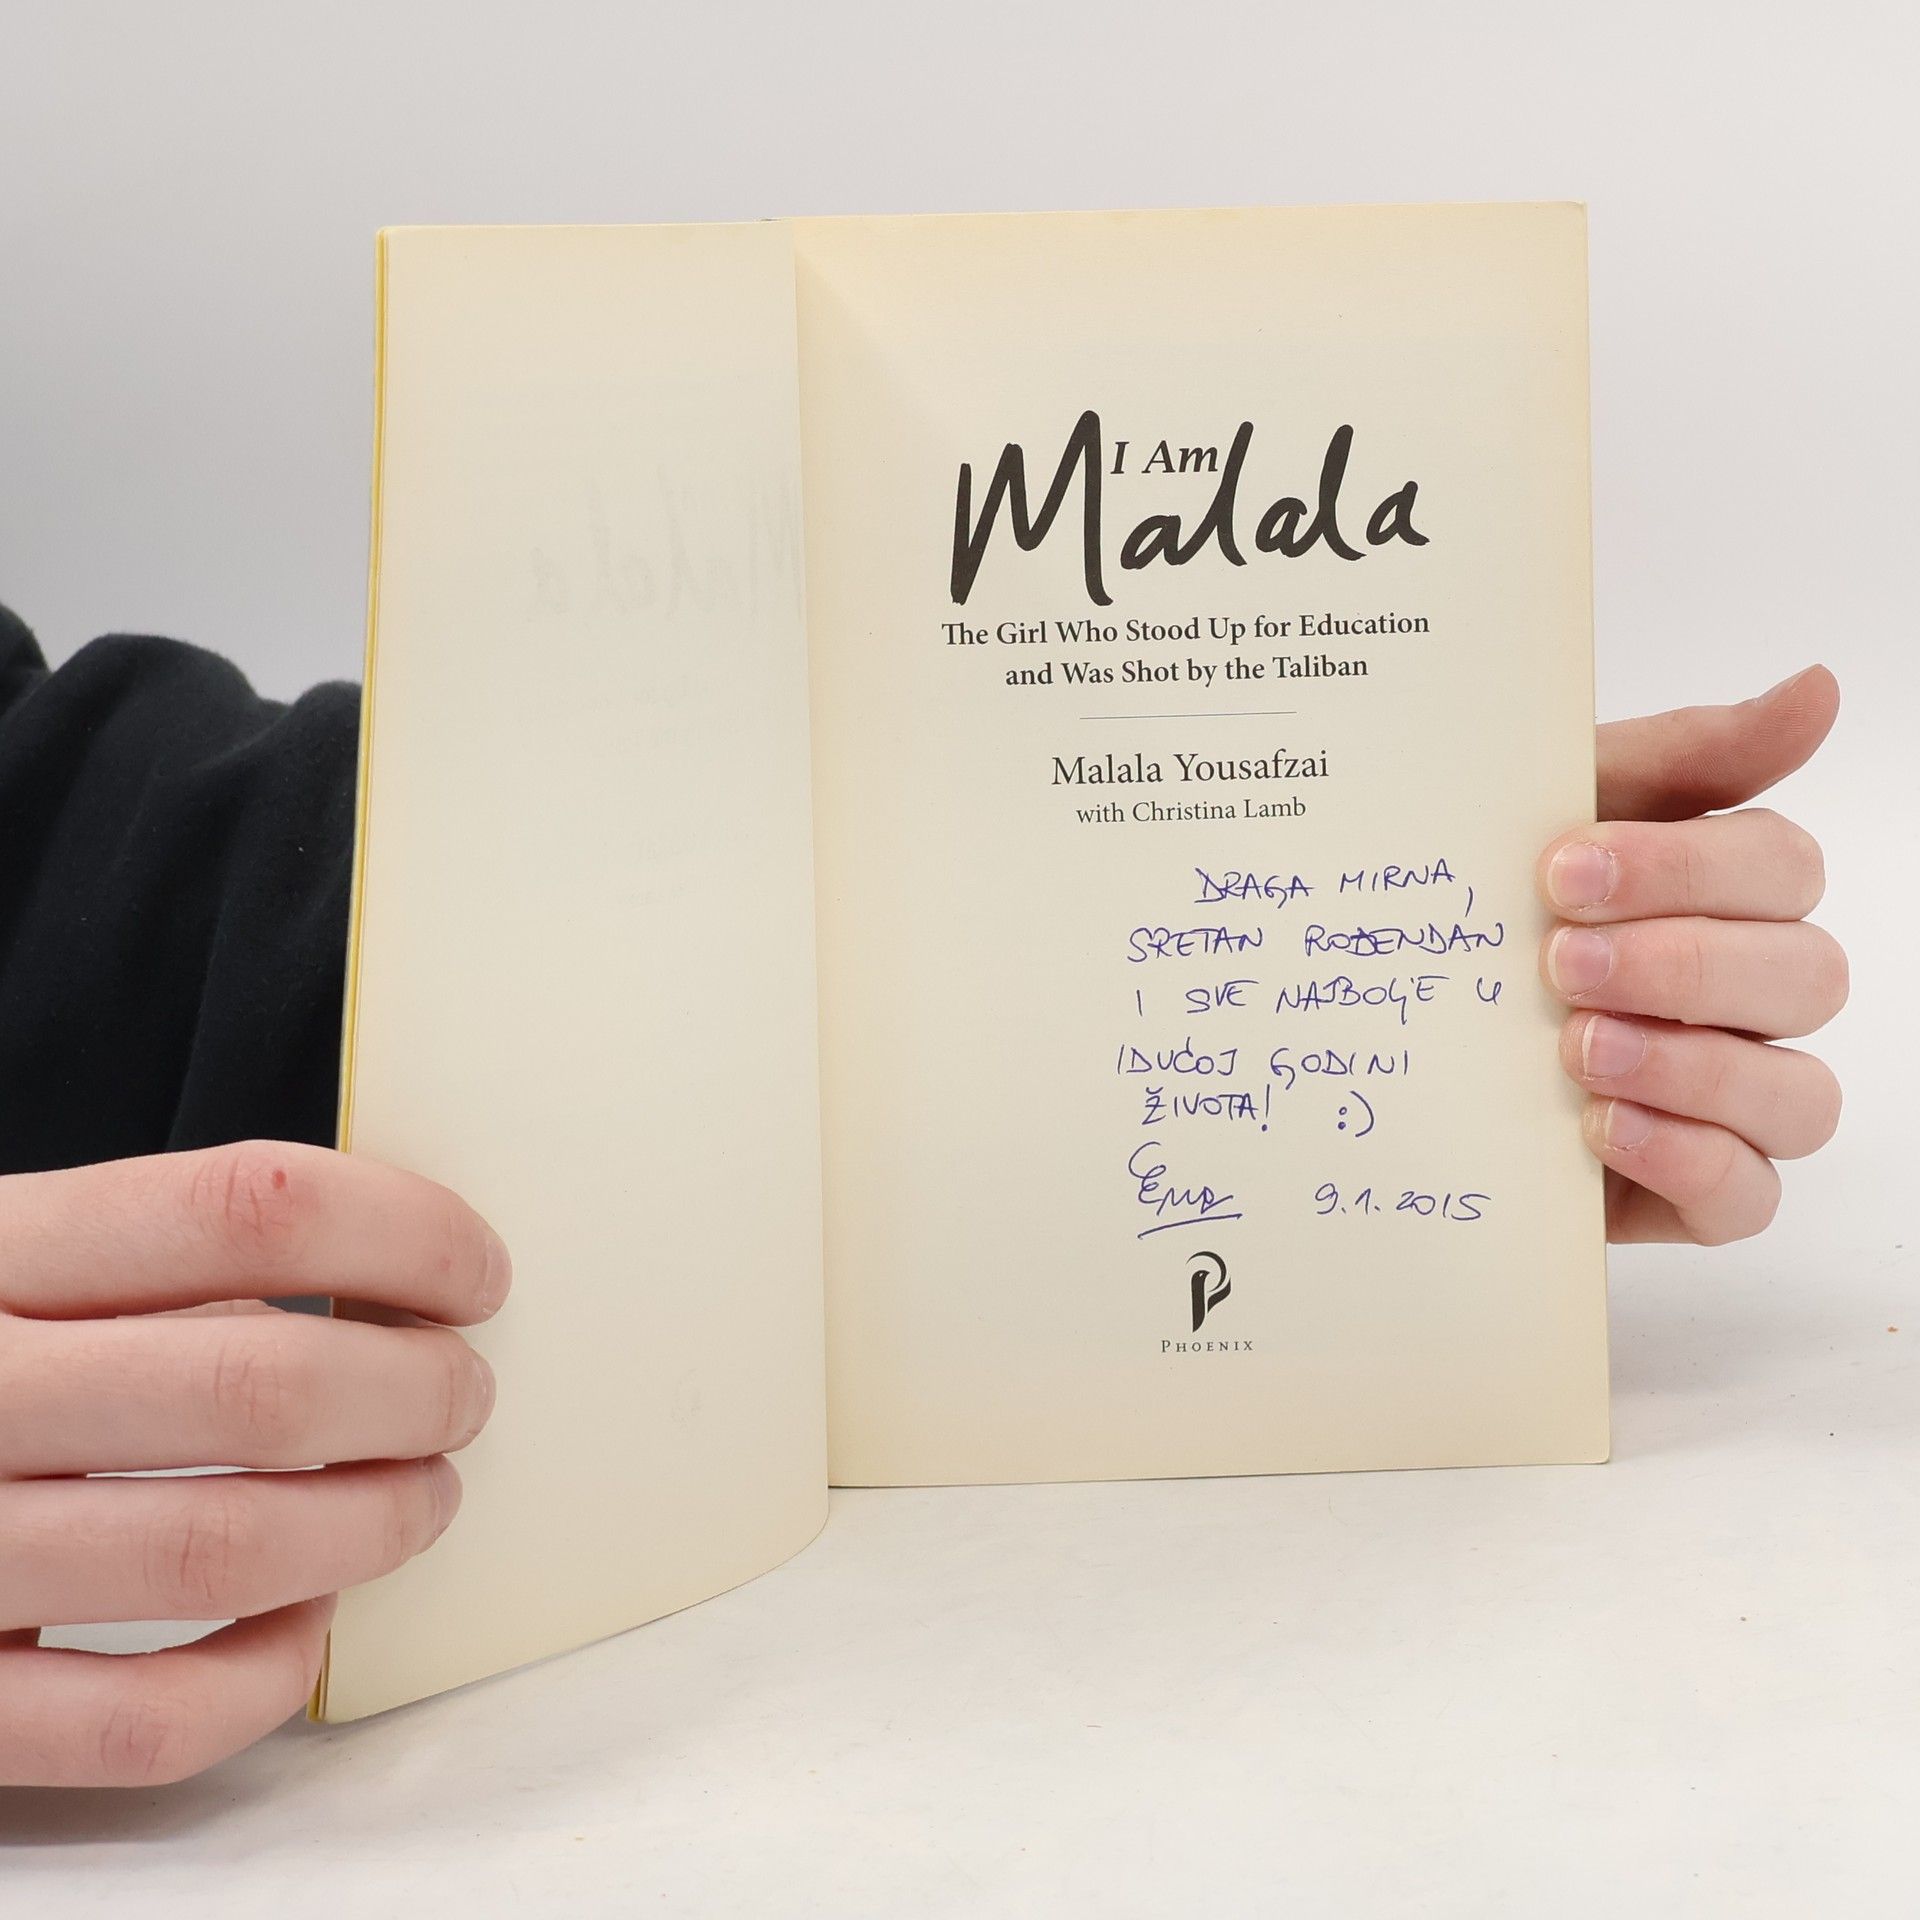 I Am
Malala
The Girl Who Stood Up for Education
and Was Shot by the Taliban
Malala Yousafzai
with Christina Lamb
DRAGA MIRNA,
SRETAN ROĐENDAN
I SVE NAJBOLJE U
IDUĆOJ GODINI
ŽIVOTA! :)
9.1.2015
PHOENIX